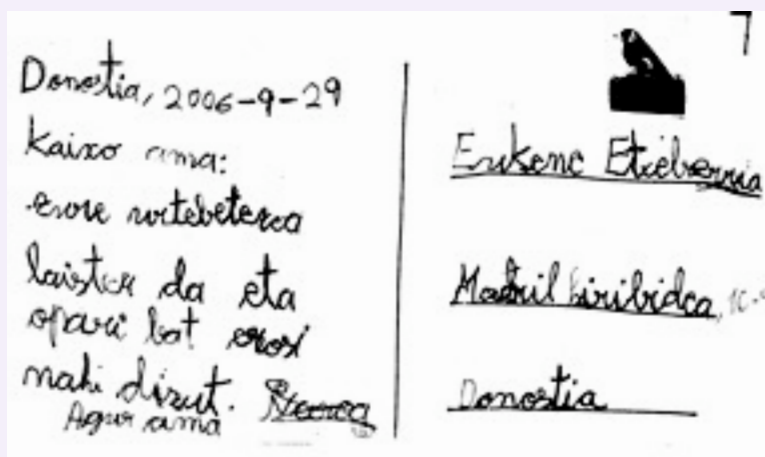 Donostia, 2006-9-29
Kaixo ama:
zure urtebetetzea
laister da eta
opari bat erosi
nahi dizut.
Agur ama
Etxeberria
Madril hiribidea,
Donostia